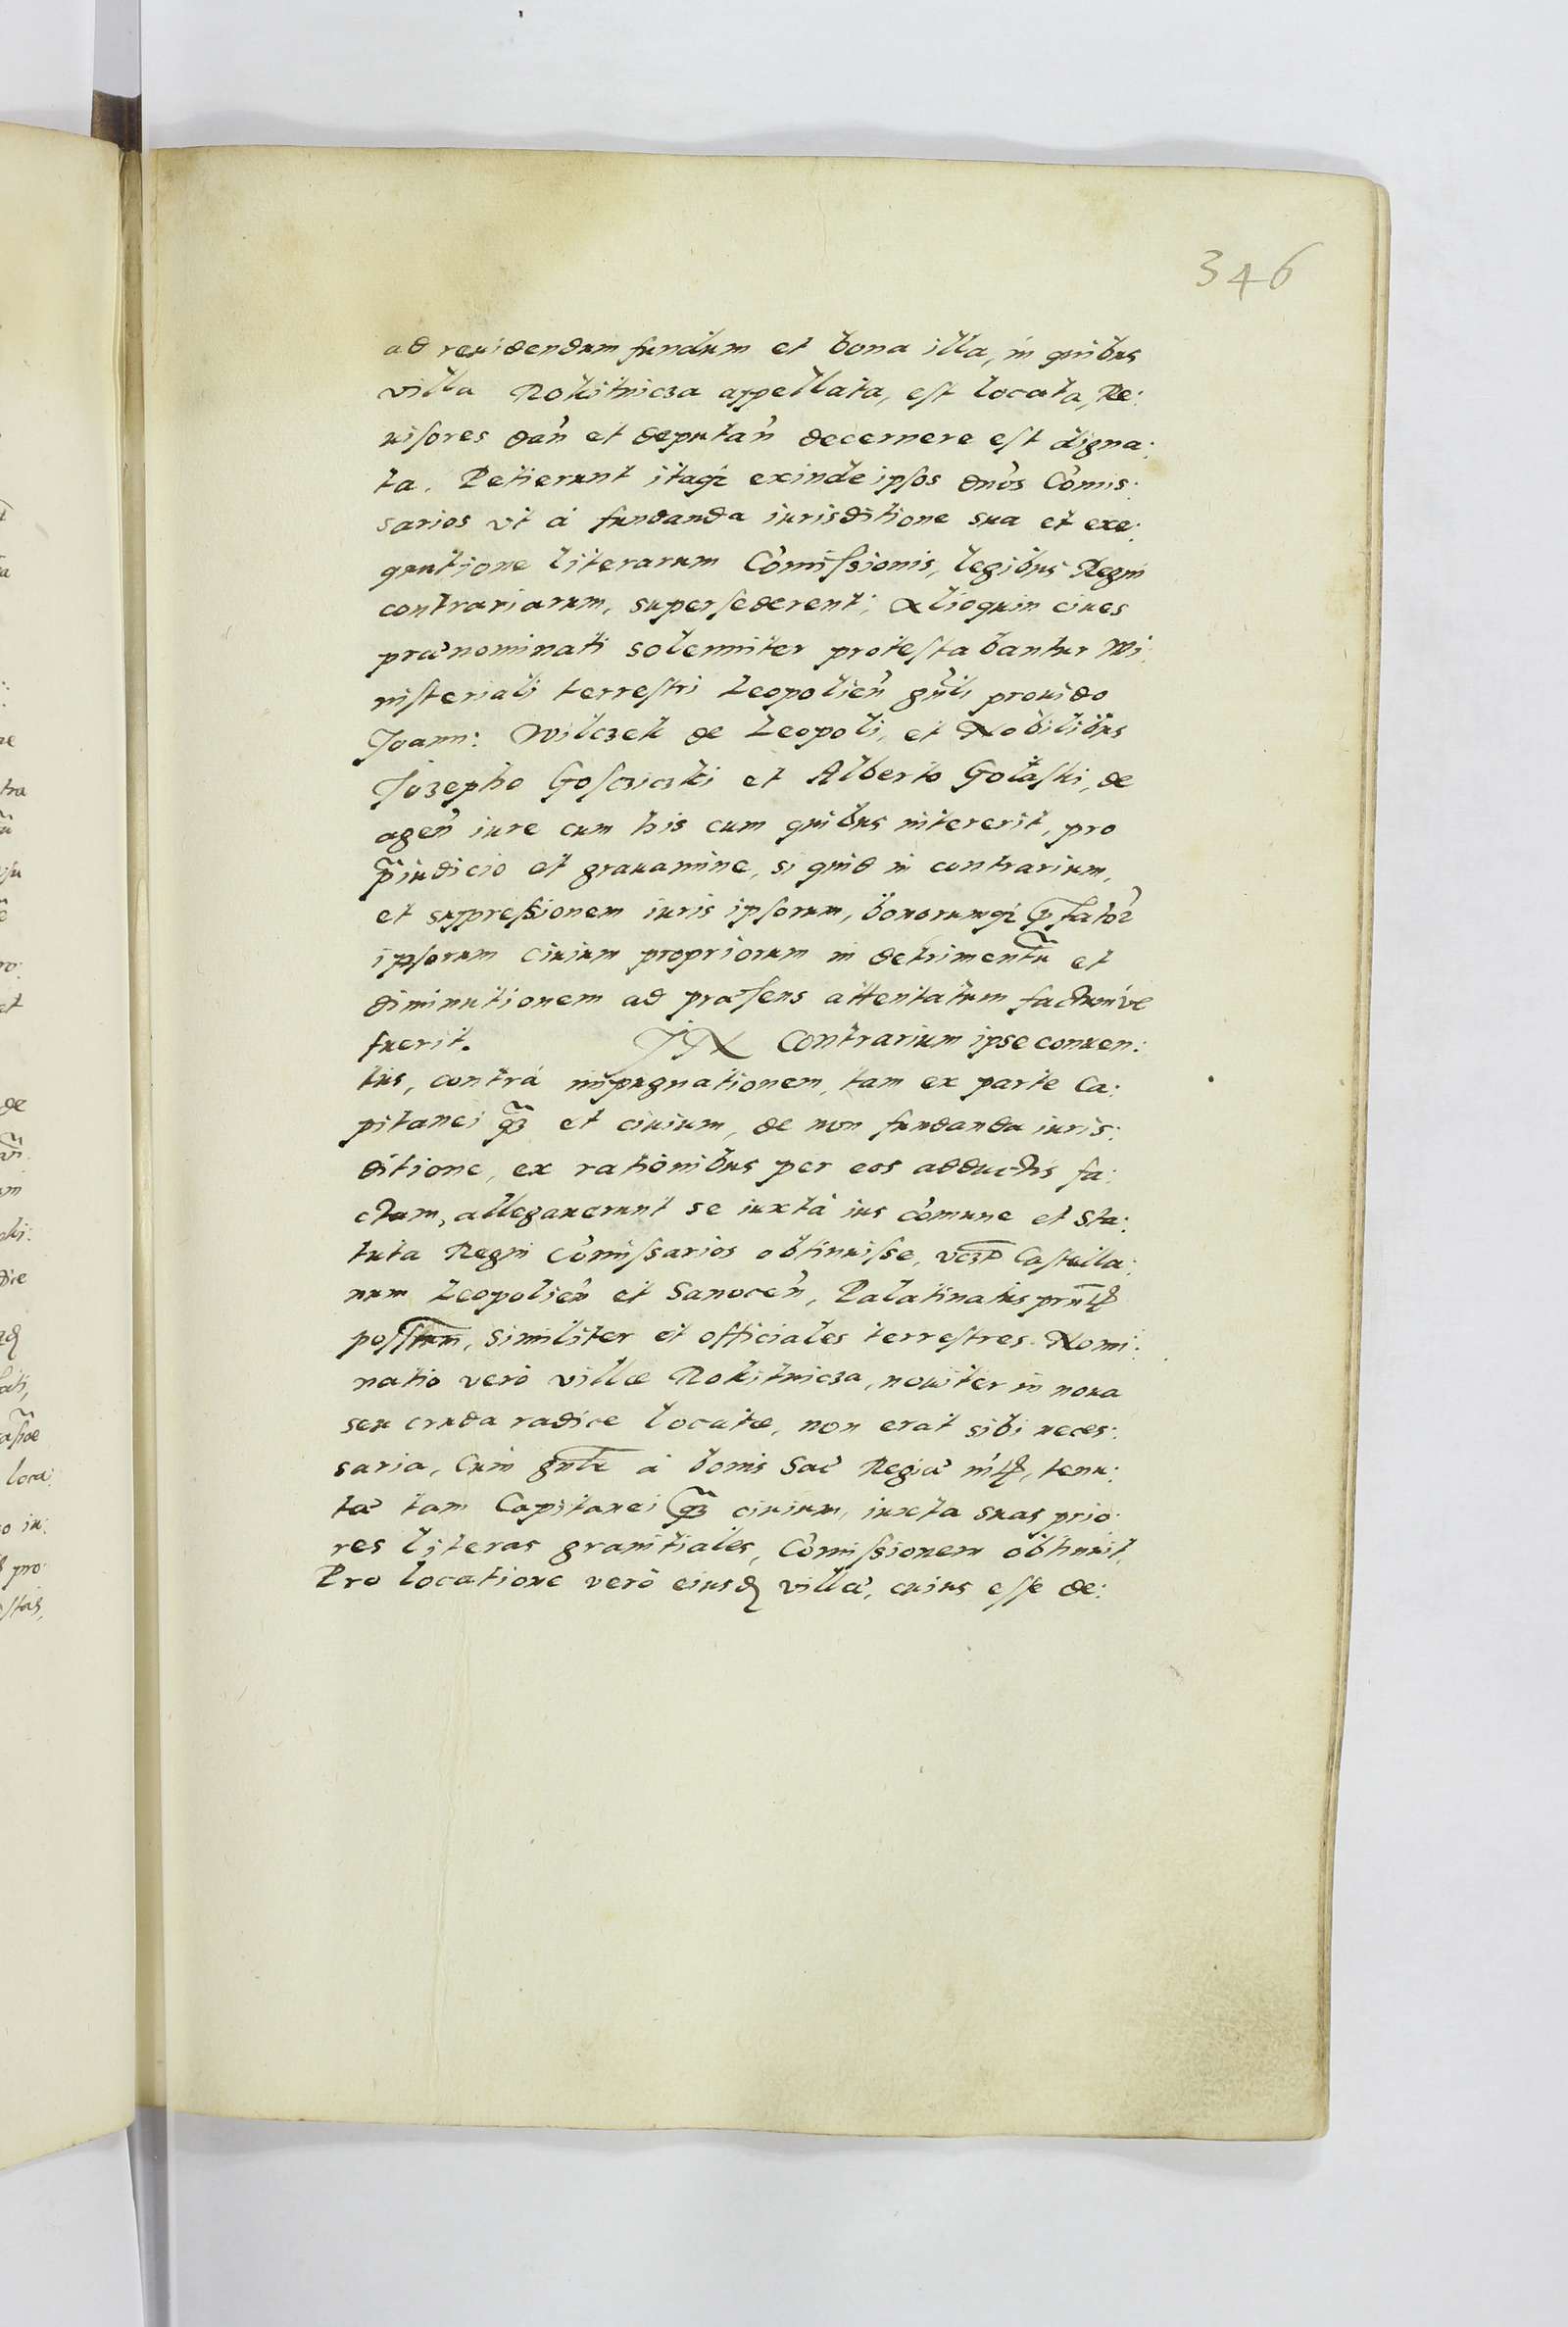 346
ad reuidendum fundum et bona illa, in quibus
villa Rokitnicza appellata, est locata, Re:
uisores dan̄ et deputan̄ decernere est digna:
ta. Petierunt itaqꝫ exinde ipsos dnōs Cōmis:
sarios vt à fundanda iurisditione sua et exe:
quutione literarum Cōmissionis, legibus Regni
contrariarum, supersederent; Alioquin ciues
prænominati solenniter protestabantur Mi:
nisteriali terrestri Leopolien̄ gn̄li prouido
Joann: Wilczek de Leopoli, et Nobilibus
Jozepho Goscziczki et Alberto Golaski, de
agen̄ iure cum his cum quibus intererit, pro
p̄iudicio et grauamine, si quid in contrarium,
et suppressionem iuris ipsorum, bonorumqꝫ
ipsorum ciuium propriorum in detrimentū et
diminutionem ad præsens attentatum factumve
fuerit. IN Contrarium ipse conuen:
tus, contrà impugnationem, tam ex parte Ca:
pitanei q̄ꝫ et ciuium, de non fundanda iuris:
ditione, ex rationibus per eos adductis fa:
ctam, allegauerunt se iuxtà ius cōmune et Sta:
tuta Regni Cōmissarios obtinuisse, Castella:
num Leopolien̄ et Sanocen̄, Palatinatus
similiter et officiales terrestres. Nomi:
natio verò villæ Rokitnicza, nouiter in noua
seu cruda radice locatæ, non erat sibi neces:
saria, Cùm à bonis Sac̄ Regiæ tenu:
tæ tam Capitanei q̄ꝫ ciuium, iuxta suas prio:
res literas granitiales, Cōmissionem obtinuit,
Pro locatione verò eiusd villæ, cuius esse de: